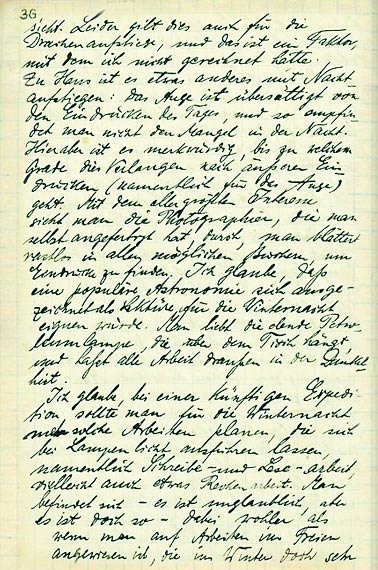 36
nicht. Leider gilt dies auch für die
Drachenaufstiege, und das ist ein Faktor,
mit dem ich nicht gerechnet hatte.
Zu Haus ist es etwas anderes mit Nacht
aufstiegen: das Auge ist übersättigt von
den Eindrücken des Tages, und so empfin
det man nicht den Mangel in der Nacht.
Hier aber ist es merkwürdig, bis zu welchem
Grade dies Verlangen nach äusseren Ein
drücken (namentlich für das Auge)
geht. Mit dem allergrößten Interesse
sieht man die Photographien, die man
selbst angefertigt hat, durch, man blättert
rastlos in allen möglichen Büchern, um
Eindrücke zu finden. Ich glaube, daß
eine populäre Astronomie sich ausge-
zeichnet als Lektüre für die Winternacht
eignen würde. Man liebt die elende Petro-
leumlampe, die über dem Tisch hängt
und haßt alle Arbeit draußen in der Dunkel-
heit.
Ich glaube, bei einer künftigen Expedi-
tion sollte man für die Winternacht
solche Arbeiten planen, die sich
bei Lampenlicht ausführen lassen,
namentlich Schreibe- und Lese-arbeit,
vielleicht auch etwas Rechenarbeit. Man
befindet sich - es ist unglaublich, aber
es ist doch so - dabei wohler als
wenn man auf Arbeiten im Freien
angewiesen ist, die im Winter doch sehr